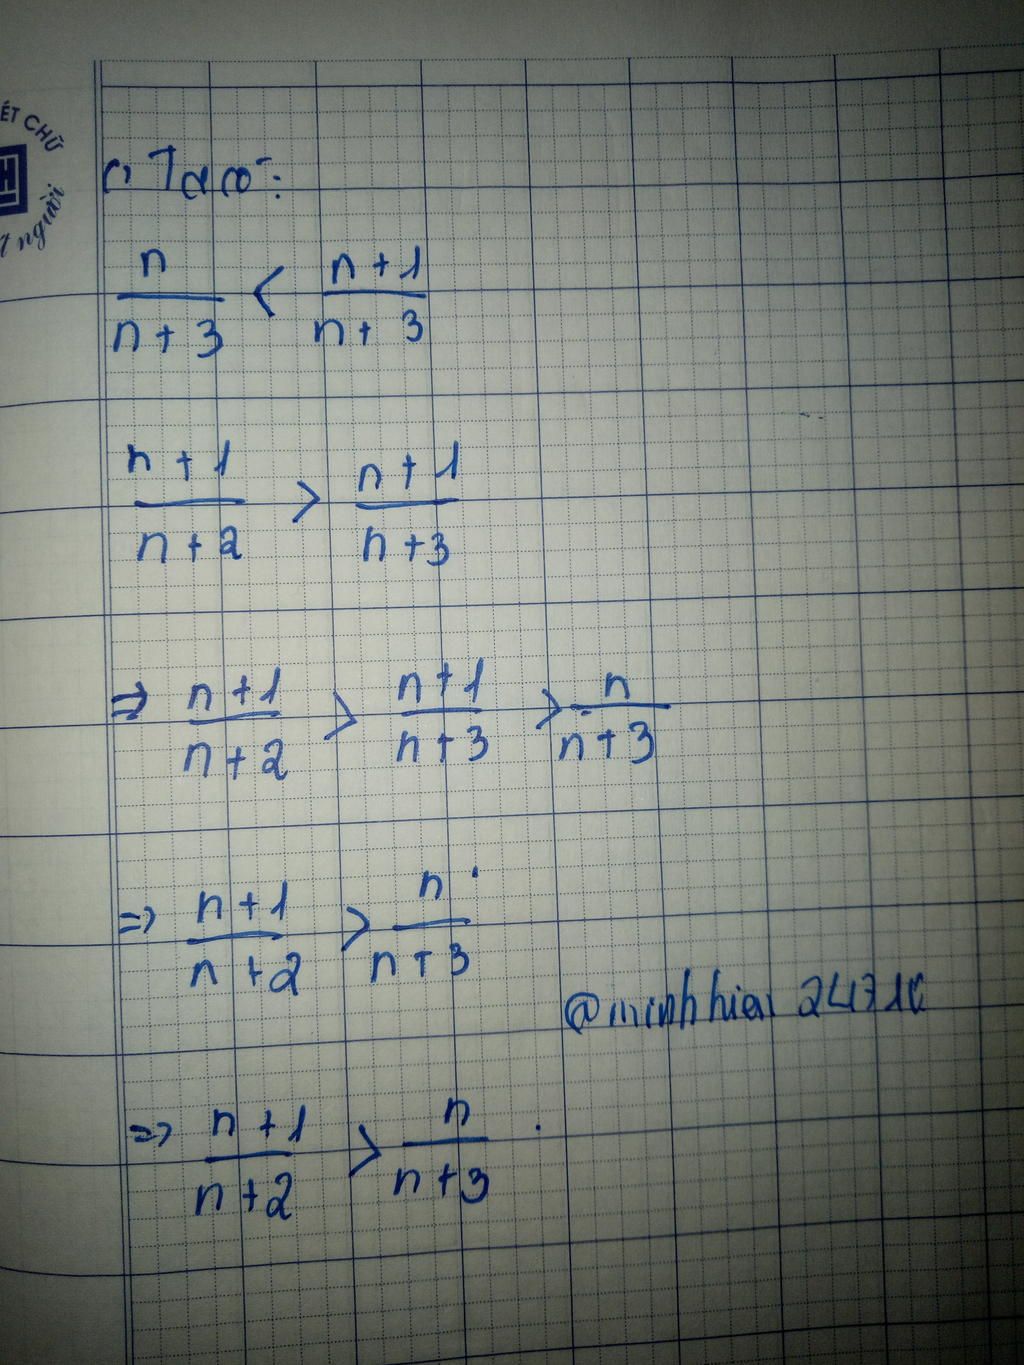 ẾT CHỮ
H
t người
c) Ta có:
n/(n+3) < (n+1)/(n+3)
(n+1)/(n+2) > (n+1)/(n+3)
=> (n+1)/(n+2) > (n+1)/(n+3) > n/(n+3)
=> (n+1)/(n+2) > n/(n+3)
=> (n+1)/(n+2) > n/(n+3)